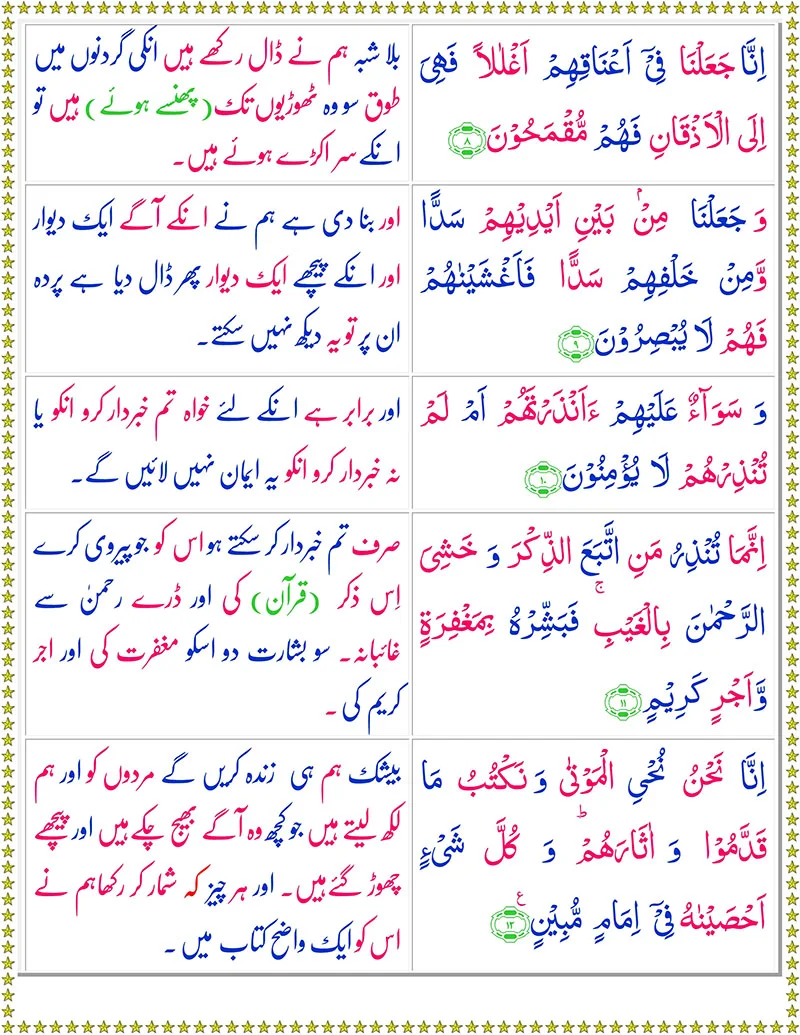 اِنَّا جَعَلْنَا فِیْۤ اَعْنَاقِهِمْ اَغْلٰلًا فَهِیَ
اِلَی الْاَذْقَانِ فَهُمْ مُّقْمَحُوْنَ ۸
بلا شبہ ہم نے ڈال رکھے ہیں انکی گردنوں میں
طوق سو وہ ٹھوڑیوں تک (پھنسے ہوئے) ہیں تو
انکے سر اکڑے ہوئے ہیں۔
وَ جَعَلْنَا مِنْۢ بَیْنِ اَیْدِیْهِمْ سَدًّا
وَّمِنْ خَلْفِهِمْ سَدًّا فَاَغْشَیْنٰهُمْ
فَهُمْ لَا یُبْصِرُوْنَ ۹
اور بنا دی ہے ہم نے انکے آگے ایک دیوار
اور انکے پیچھے ایک دیوار پھر ڈال دیا ہے پردہ
ان پر تو یہ دیکھ نہیں سکتے۔
وَ سَوَآءٌ عَلَیْهِمْ ءَاَنْذَرْتَهُمْ اَمْ لَمْ
تُنْذِرْهُمْ لَا یُؤْمِنُوْنَ ۱۰
اور برابر ہے انکے لئے خواہ تم خبردار کرو انکو یا
نہ خبردار کرو انکو یہ ایمان نہیں لائیں گے۔
اِنَّمَا تُنْذِرُ مَنِ اتَّبَعَ الذِّکْرَ وَ خَشِیَ
الرَّحْمٰنَ بِالْغَیْبِ ۚ فَبَشِّرْهُ بِمَغْفِرَةٍ
وَّاَجْرٍ کَرِیْمٍ ۱۱
صرف تم خبردار کر سکتے ہو اس کو جو پیروی کرے
اِس ذکر (قرآن) کی اور ڈرے رحمنٰ سے
غائبانہ۔ سو بشارت دو اسکو مغفرت کی اور اجر
کریم کی۔
اِنَّا نَحْنُ نُحْیِ الْمَوْتٰی وَ نَکْتُبُ مَا
قَدَّمُوْا وَ اٰثَارَهُمْ ؕ وَ کُلَّ شَیْءٍ
اَحْصَیْنٰهُ فِیْۤ اِمَامٍ مُّبِیْنٍ ۱۲ ع
بیشک ہم ہی زندہ کریں گے مردوں کو اور ہم
لکھ لیتے ہیں جو کچھ وہ آگے بھیج چکے ہیں اور پیچھے
چھوڑ گئے ہیں۔ اور ہر چیز کہ شمار کر رکھا ہم نے
اس کو ایک واضح کتاب میں ۔